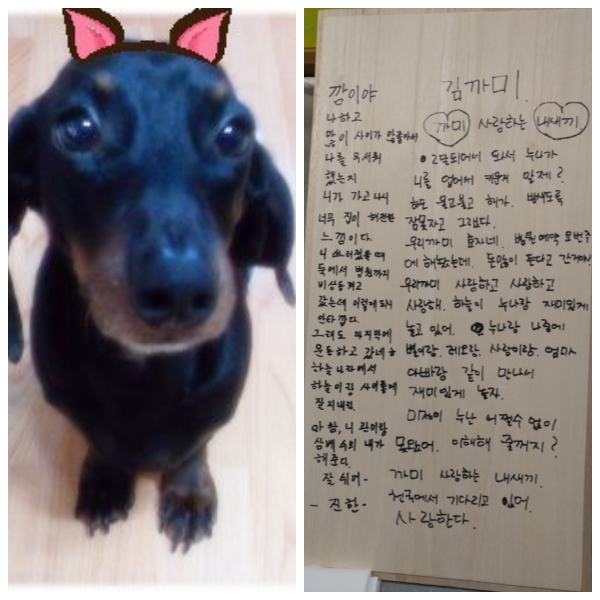 깜이야
나하고
많이 사이가 안좋아서
나를 무서워
했는지
니가 가고나니
너무 집이 허전한
느낌이다.
니 쓰러졌을때
둑에서 병원까지
갔는데 이렇게 되니
안타깝다.
그래도 마지막에
운동하고 갔네ㅎ
하늘나라에서
하늘이랑 사이좋게
잘지내라.
아 참, 니
삼베 수의 내가
해준다.
잘 쉬어-
- 진한-
김까미.
까미 사랑하는 내새끼
2단되어서 와서 누나가
니를 업어서 키운게 맞제?
하도 물고불고 해가. 밤새도록
잠못자고 그랬다.
우리까미 효자네. 병원 예약
에 해놨는데. 돈많이 든다고 간거야?
우리까미 사랑하고 사랑하고
사랑해. 하늘이 누나랑 재미있게
놀고 있어. 누나랑 나중에
별이랑. 레오랑. 사랑이랑. 엄마
아빠랑 같이 만나서
재미있게 놀자.
누난 어쩔수 없이
못왔어. 이해해 줄꺼지?
까미 사랑하는 내새끼.
천국에서 기다리고 있어.
사랑한다.